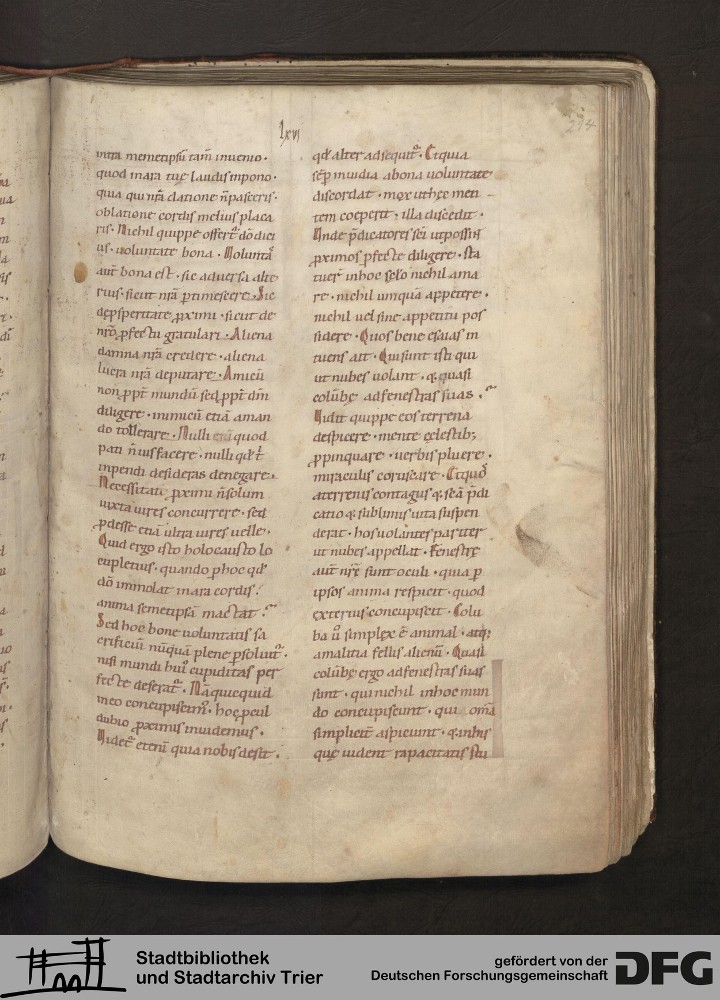 lxvi
214
intra memetipsū tam̄ inuenio·
quod in ara tuę laudis inpono·
quia qui nr̄a datione n̄ pasceris·
oblatione cordis melius placa
ris· Nichil quippe offert᷑ dō diti
us· uoluntate bona· Voluntaſ
aut̄ bona est· sic aduersa alte
rius· sicut nr̄a ꝑtimescere· Sic
de ꝓsperitate ꝓximi· sicut de
nr̄o ꝓfectu gratulari· Aliena
damna nr̄a credere· aliena
lucra nr̄a deputare· Amicū
non ꝓpt̄ mundū sed ꝓpt̄ dm̄
diligere· inimicū etiā aman
do tollerare· Nulli quod
pati n̄ uis facere· nulli qd̄ t̄
inpendi desideras denegare·
Necessitati ꝓximi n̄ solum
iuxta uires concurrere· sed
ꝓdesse etiā ultra uires uelle·
Quid ergo isto holocausto lo
cupletius· quando ꝑ hoc qd̄
dō immolat in ara cordis·
anima semetipsā mactat·
Sed hoc bone uoluntatis sa
crificiū nūquā plene ꝑsoluit᷑·
nisi mundi hui᷒ cupiditas per
fecte deserat᷑· Nā quicquid
in eo concupiscim᷒· hoc ꝓcul
dubio ꝓximis inuidemus·
Videt᷑ etenī quia nobis desit·
qd̄ alter adsequit᷑· Et quia
sēp inuidia a bona uoluntate
discordat· mox ut hęc men
tem coeperit· illa discedit·
Vnde p̄dicatores sc̄i ut possint
ꝓximos ꝑfecte diligere· stu
tuer̄ in hoc sclo nichil ama
re· nichil umquā appetere·
nichil uel sine appetitu pos
sidere· Quos bene esaias in
tuens ait· Qui sunt isti qui
ut nubes uolant· & quasi
colūbę ad fenestras suas·
Vidit quippe eos terrena
despicere· mente cęlestib;
ꝓpinquare· uerbis pluere·
miraculis coruscare· Et quoſ
a terrenis contagiis & sc̄ā p̄di
catio & sublimis uita suspen
derat· hos uolantes pariter
ut nubes appellat· Fenestrę
aut̄ nr̄ę sunt oculi· quia ꝑ
ipsos anima respicit· quod
exterius concupiscit· Colū
ba ū simplex ē animal· atq;
a malitia fellis alienū· Quasi
colūbę ergo ad fenestras suas
sunt· qui nichil in hoc mun
do concupiscunt· qui om̄a
simplicit̄ aspiciunt· & in his
quę uident rapacitatis stu
Stadtbibliothek
und Stadtarchiv Trier
gefördert von der
Deutschen Forschungsgemeinschaft
DFG